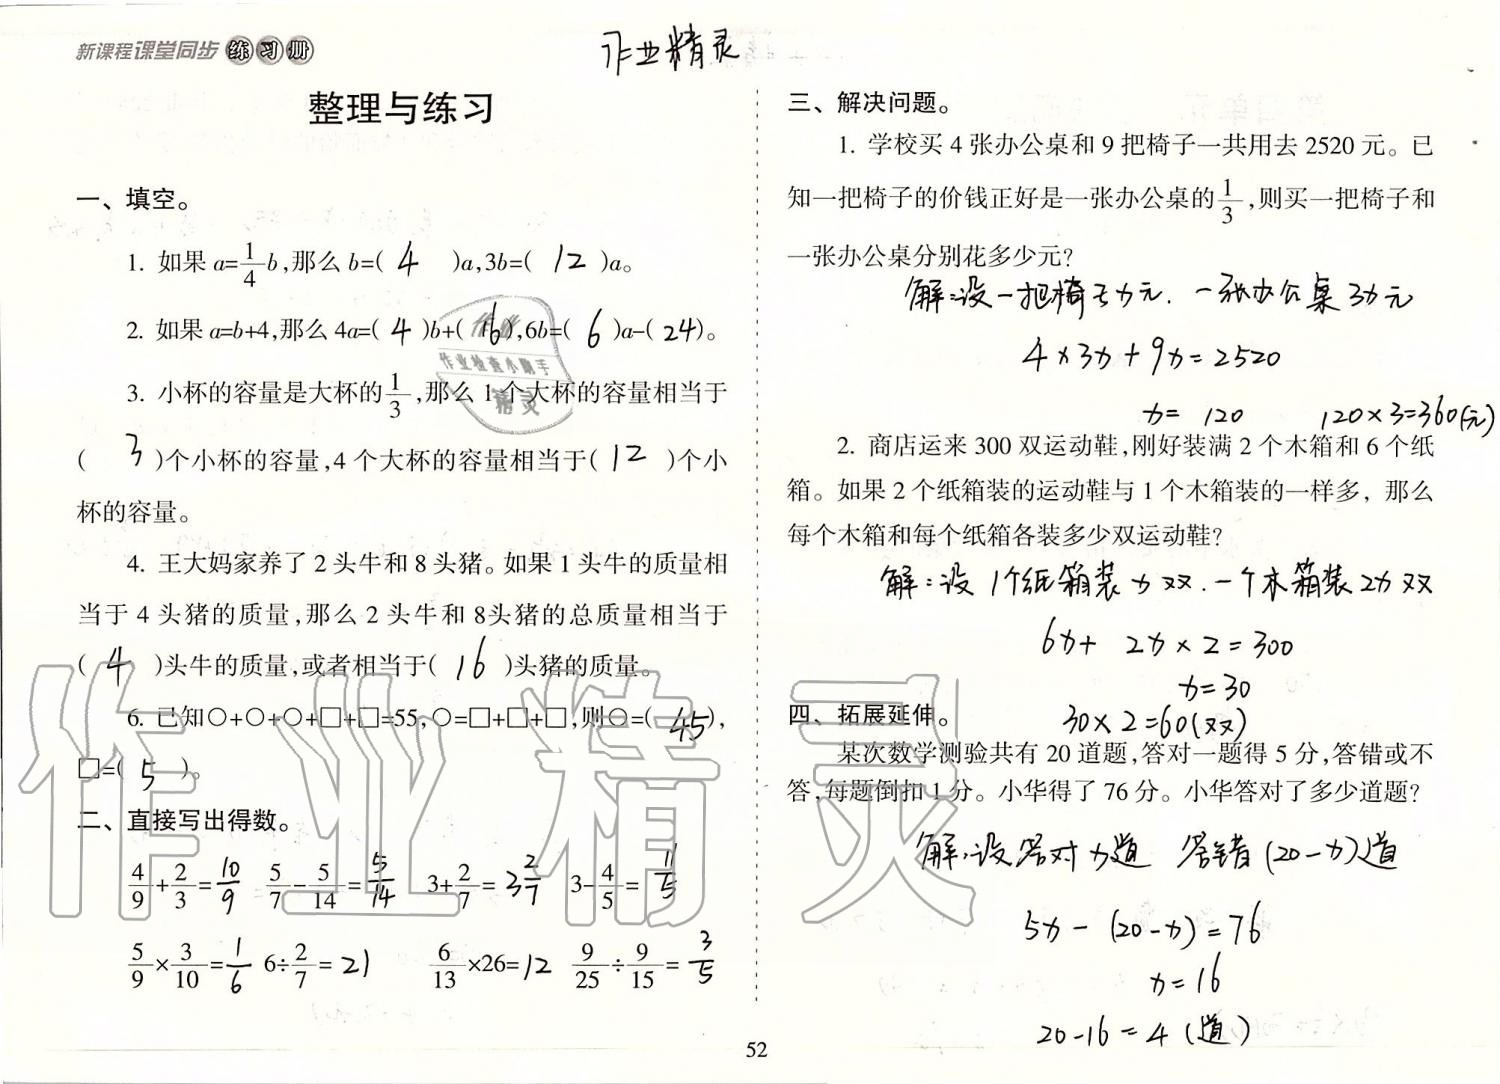 新课程课堂同步练习册
作业精灵
整理与练习
一、填空。
1. 如果 a=1/4b,那么 b=( 4 )a,3b=( 12 )a。
2. 如果 a=b+4,那么 4a=( 4 )b+( 16 ),6b=( 6 )a-( 24 )。
3. 小杯的容量是大杯的1/3,那么 1 个大杯的容量相当于
( 3 )个小杯的容量,4 个大杯的容量相当于( 12 )个小
杯的容量。
4. 王大妈家养了 2 头牛和 8 头猪。如果 1 头牛的质量相
当于 4 头猪的质量,那么 2 头牛和 8头猪的总质量相当于
( 4 )头牛的质量,或者相当于( 16 )头猪的质量。
6. 已知○+○+○+□+□=55,○=□+□+□,则○=( 45 ),
□=( 5 )。
二、直接写出得数。
4/9+2/3=10/9 5/7-5/14=5/14 3+2/7=3 2/7 3-4/5=11/5
5/9×3/10=1/6 6÷2/7=21 6/13×26=12 9/25÷9/15=3/5
作业检查小助手
精灵
作业精灵
三、解决问题。
1. 学校买 4 张办公桌和 9 把椅子一共用去 2520 元。已
知一把椅子的价钱正好是一张办公桌的1/3,则买一把椅子和
一张办公桌分别花多少元?
解:设一把椅子x元. 一张办公桌3x元
4×3x+9x=2520
x= 120 120×3=360(元)
2. 商店运来 300 双运动鞋,刚好装满 2 个木箱和 6 个纸
箱。如果 2 个纸箱装的运动鞋与 1 个木箱装的一样多, 那么
每个木箱和每个纸箱各装多少双运动鞋?
解:设 1个纸箱装 x双. 一个木箱装2x双
6x+ 2x×2=300
x=30
30×2=60(双)
四、拓展延伸。
某次数学测验共有 20 道题,答对一题得 5 分,答错或不
答,每题倒扣 1 分。小华得了 76 分。小华答对了多少道题?
解:设答对x道 答错(20-x)道
5x-(20-x)=76
x=16
20-16=4(道)
52